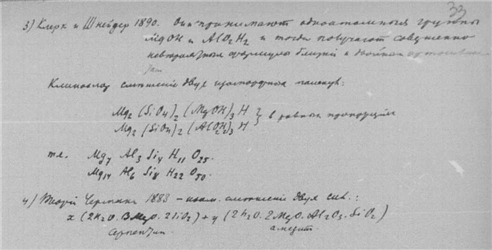 39
3) Кларк и Шнейдер 1890. Они принимают одноатомныя группы
MgOH и AlO2H2 и тогда получают совершенно
формулы близкия к двойным ортосиликатам
Клинохлор смешение двух изоморфных
Mg2 (SiO4)2 (MgOH)3 H } в равных пропорциях
Mg2 (SiO4)2 (AlO2H2)3 H
т.е. Mg7 Al3 Si4 H11 O25.
Mg14 Al6 Si8 H22 O50.
4) Теория Чермака 1883 - смешение двух сил.:
x (2H2O. 3MgO. 2SiO2) + y (2H2O. 2MgO. Al2O3. SiO2)
серпентин амезит